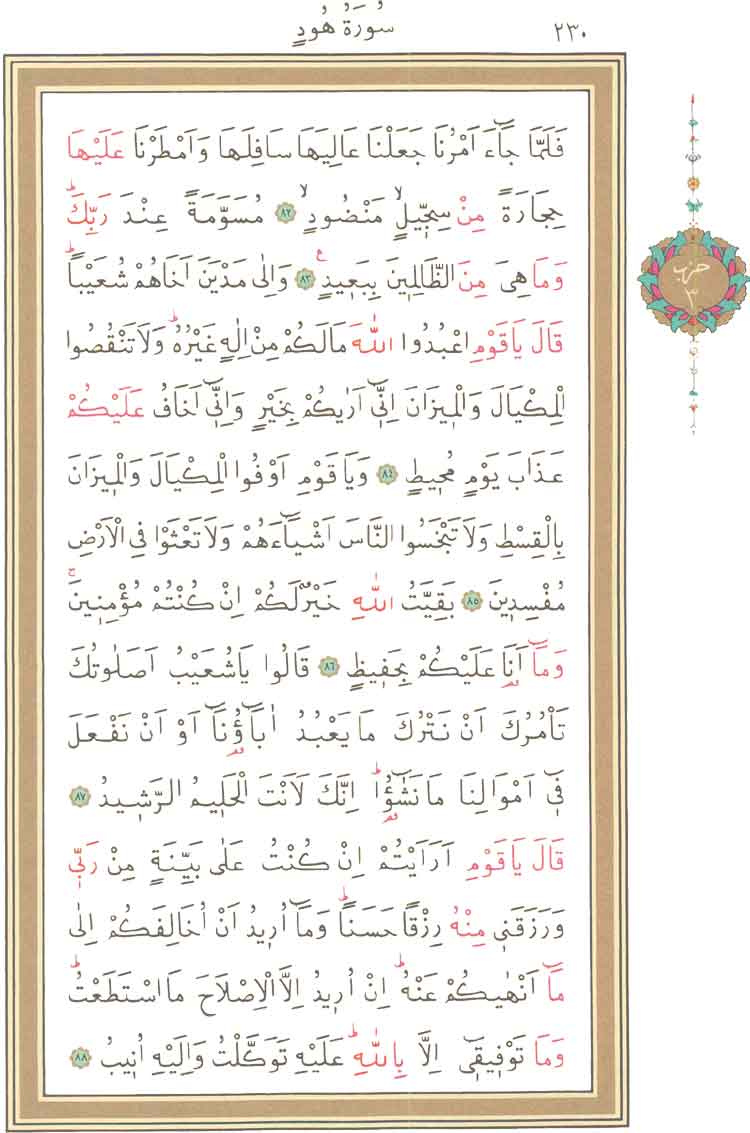 ٢٣٠
سُورَةُ هُودٍ
فَلَمَّا جَٓاءَ اَمْرُنَا جَعَلْنَا عَالِيَهَا سَافِلَهَا وَاَمْطَرْنَا عَلَيْهَا
حِجَارَةً مِنْ سِجّ۪يلٍۙ مَنْضُودٍۙ ﴿٨٢﴾ مُسَوَّمَةً عِنْدَ رَبِّكَۜ
وَمَا هِيَ مِنَ الظَّالِم۪ينَ بِبَع۪يدٍ۟ ﴿٨٣﴾ وَاِلٰى مَدْيَنَ اَخَاهُمْ شُعَيْباًۜ
قَالَ يَا قَوْمِ اعْبُدُوا اللّٰهَ مَا لَكُمْ مِنْ اِلٰهٍ غَيْرُهُۜ وَلَا تَنْقُصُوا
الْمِكْيَالَ وَالْم۪يزَانَ اِنّ۪ٓي اَرٰيكُمْ بِخَيْرٍ وَاِنّ۪ٓي اَخَافُ عَلَيْكُمْ
عَذَابَ يَوْمٍ مُح۪يطٍ ﴿٨٤﴾ وَيَا قَوْمِ اَوْفُوا الْمِكْيَالَ وَالْم۪يزَانَ
بِالْقِسْطِ وَلَا تَبْخَسُوا النَّاسَ اَشْيَٓاءَهُمْ وَلَا تَعْثَوْا فِي الْاَرْضِ
مُفْسِد۪ينَ ﴿٨٥﴾ بَقِيَّتُ اللّٰهِ خَيْرٌ لَكُمْ اِنْ كُنْتُمْ مُؤْمِن۪ينَۚ
وَمَٓا اَنَا۬ عَلَيْكُمْ بِحَف۪يظٍ ﴿٨٦﴾ قَالُوا يَا شُعَيْبُ اَصَلٰوتُكَ
تَأْمُرُكَ اَنْ نَتْرُكَ مَا يَعْبُدُ اٰبَٓاؤُ۬نَٓا اَوْ اَنْ نَفْعَلَ
ف۪ٓي اَمْوَالِنَا مَا نَشٰٓؤُ۬اۜ اِنَّكَ لَاَنْتَ الْحَل۪يمُ الرَّش۪يدُ ﴿٨٧﴾
قَالَ يَا قَوْمِ اَرَاَيْتُمْ اِنْ كُنْتُ عَلٰى بَيِّنَةٍ مِنْ رَبّ۪ي
وَرَزَقَن۪ي مِنْهُ رِزْقاً حَسَناًۜ وَمَٓا اُر۪يدُ اَنْ اُخَالِفَكُمْ اِلٰى
مَٓا اَنْهٰيكُمْ عَنْهُۜ اِنْ اُر۪يدُ اِلَّا الْاِصْلَاحَ مَا اسْتَطَعْتُۜ
وَمَا تَوْف۪يق۪ٓي اِلَّا بِاللّٰهِۜ عَلَيْهِ تَوَكَّلْتُ وَاِلَيْهِ اُن۪يبُ ﴿٨٨﴾
حزب
٣